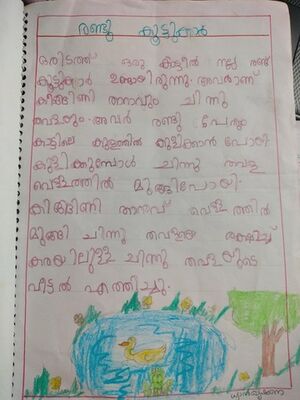 രണ്ടു കൂട്ടുകാർ
ഒരിടത്ത് ഒരു കാട്ടിൽ നല്ല രണ്ട്
കൂട്ടുകാർ ഉണ്ടായിരുന്നു. അവരാണ്
കിങ്ങിണി താറാവും ചിന്നു
തവളയും. അവർ രണ്ടു പേരും
കാട്ടിലെ കുളത്തിൽ കുളിക്കാൻ പോയി.
കുളിക്കുമ്പോൾ ചിന്നു തവള
വെള്ളത്തിൽ മുങ്ങിപോയി.
കിങ്ങിണി താറാവ് വെള്ളത്തിൽ
മുങ്ങി ചിന്നു തവളയെ രക്ഷിച്ച്
കരയിലുള്ള ചിന്നു തവളയുടെ
വീട്ടൽ എത്തിച്ചു.